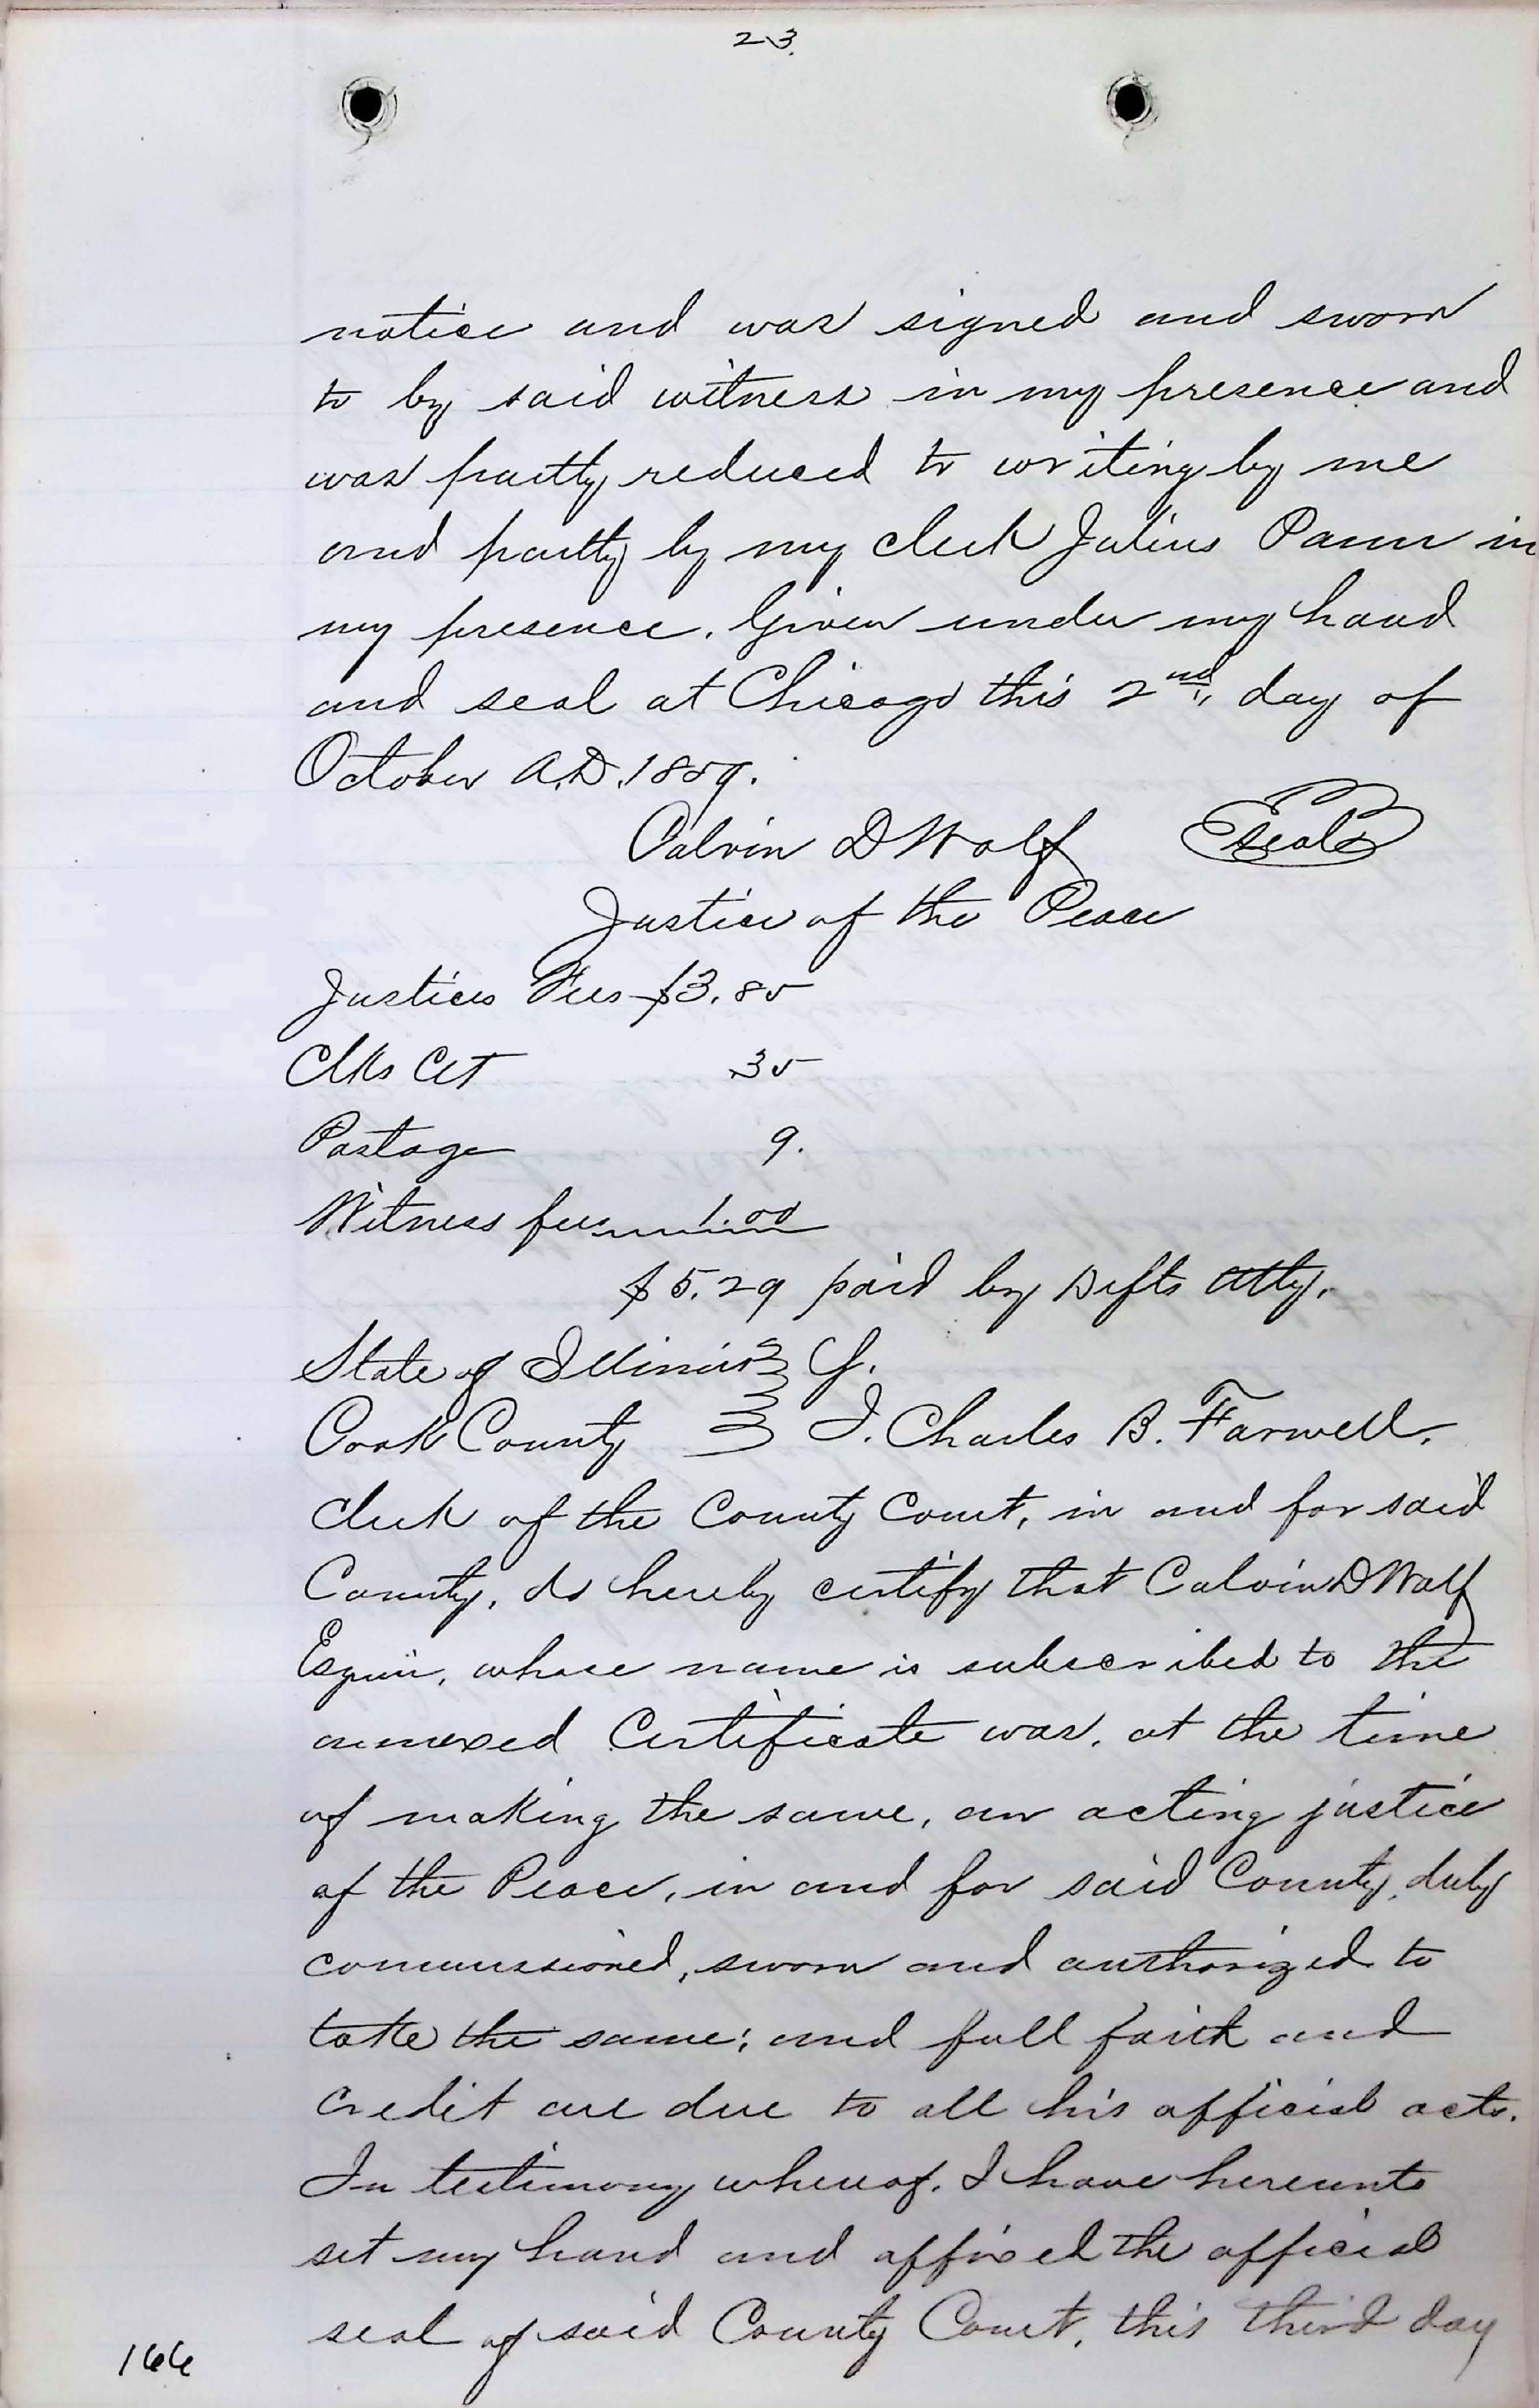 23.
notice and was signed and sworn
to by said witness in my presence and
was partly reduced to writing by me
and partly by my clerk Julius Pann in
my presence. Given under my hand
and seal at Chicago this 2nd, day of
October A.D. 1859.
Calvin D Wolf seal
Justice of the Peace
Justices Fees $3.85
Clks Cet 35
Postage 9.
Witness fees 1.00
$5.29 paid by Defts Atty.
State of Illinois
Cook County I. Charles B. Farwell.
clerk of the County Court, in and for said
County, do hereby certify that Calvin D Wolf
Esquire, whose name is subscribed to the
annexed Certificate was, at the time
of making the same, an acting justice
of the Peace, in and for said County, duly
commissioned, sworn and authorized to
take the same; and full faith and
credit are due to all his official acts.
In testimony whereof, I have hereunto
set my hand and affixed the official
seal of said County Court, this third day
166